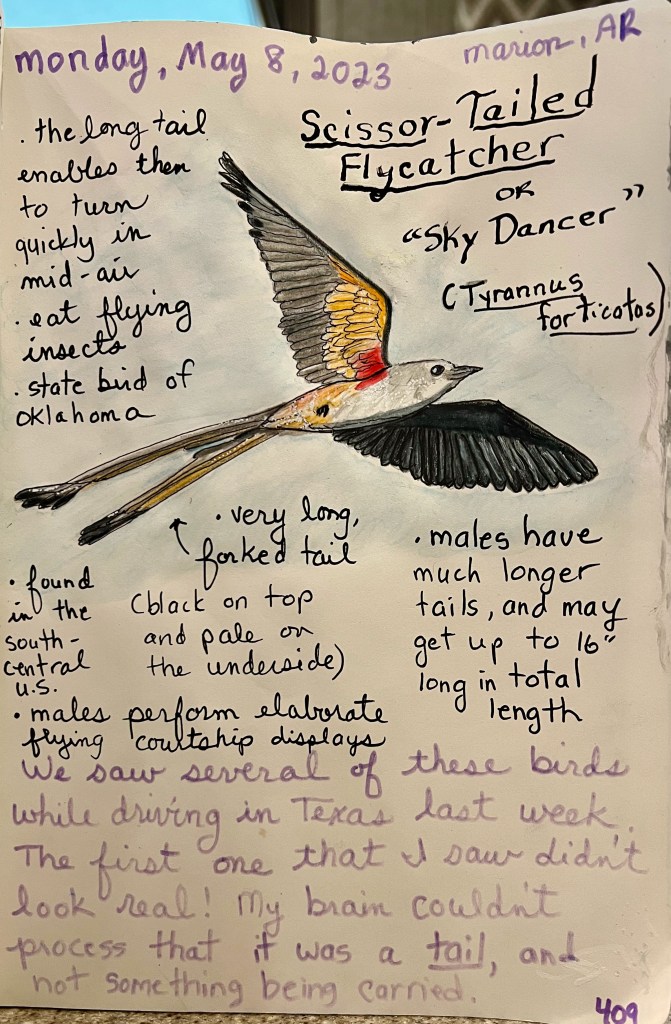 monday, May 8, 2023
marion, AR
Scissor-Tailed
Flycatcher
OR
"Sky Dancer"
(Tyrannus
forticatos)
· the long tail
enables them
to turn
quickly in
mid-air
· eat flying
insects
· state bird of
Oklahoma
· very long,
forked tail
(black on top
and pale on
the underside)
· males have
much longer
tails, and may
get up to 16"
long in total
length
· found
in the
south-
central
U.S.
· males perform elaborate
flying courtship displays
We saw several of these birds
while driving in Texas last week.
The first one that I saw didn't
look real! My brain couldn't
process that it was a tail, and
not something being carried.
409